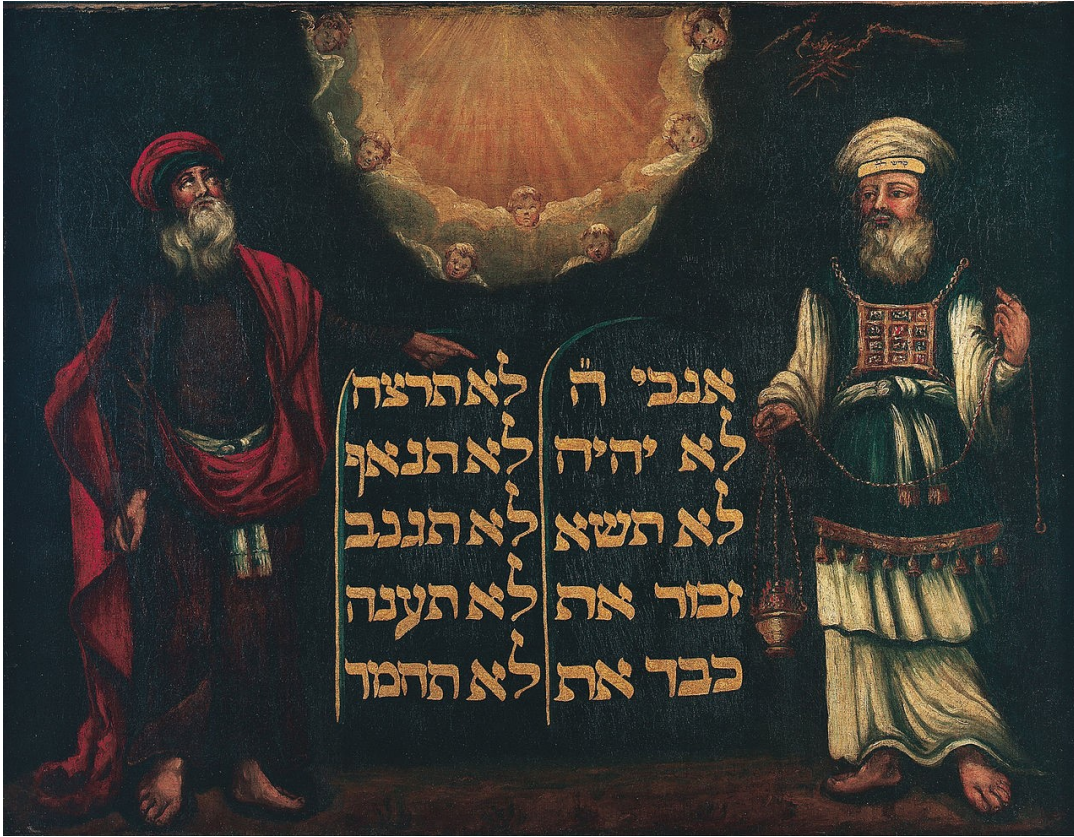 קדש
אנכי ה"
לא יהיה
לא תשא
זכור את
כבד את
לא תרצח
לא תנאף
לא תגנב
לא תענה
לא תחמד